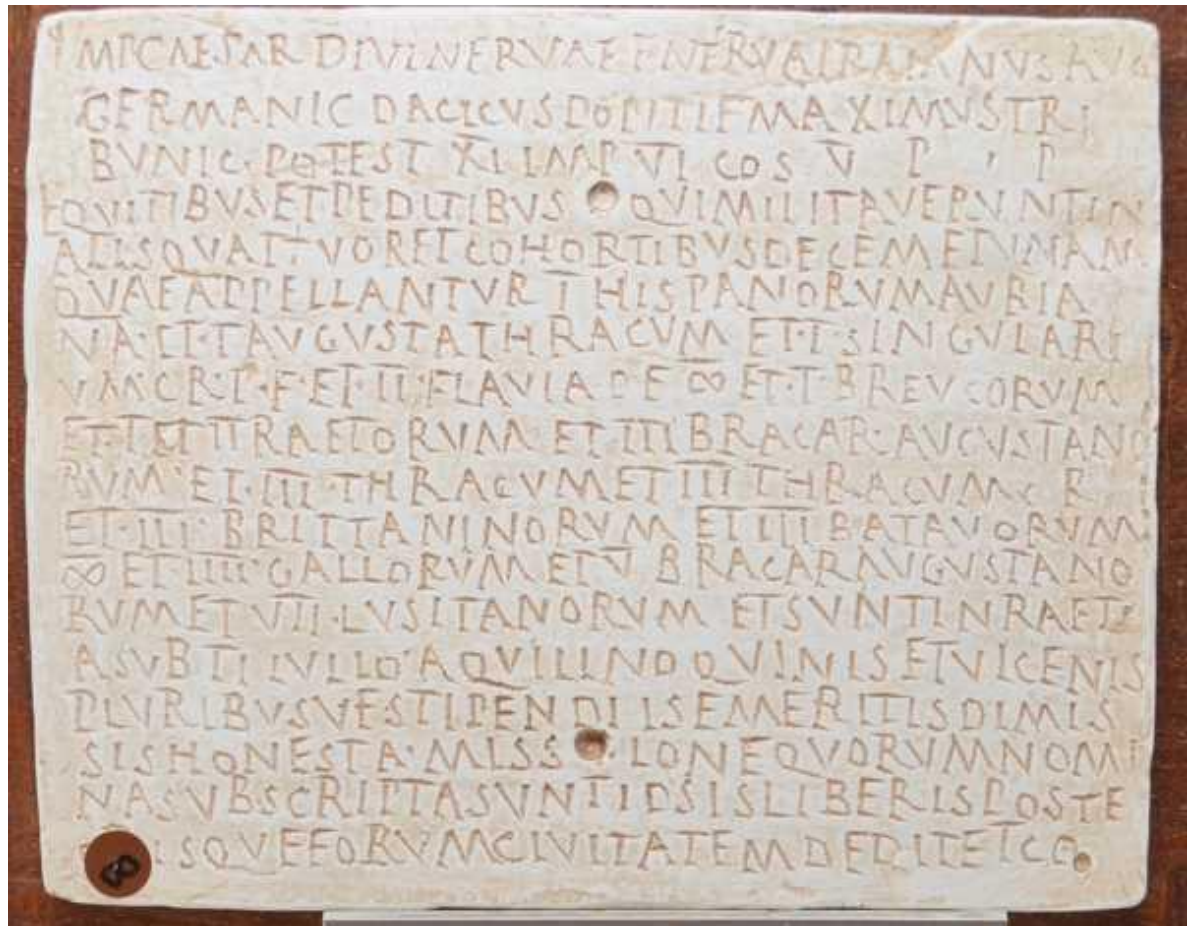 IMP CAESAR DIVI NERVAE F NERVA TRAIANVS AVG
GERMANIC DACICVS PONTIF MAXIMVS TRI
BVNIC · POTEST XII IMP VI COS V P · P
EQVITIBVS ET PEDITIBVS QVI MILITAVERVNT IN
ALIS QVATTVOR ET COHORTIBVS DECEM ET VNAM
QVAE APPELLANTVR I HISPANORVM AVRIA
NA · ET · I AVGVSTA THRACVM ET · I · SINGVLARI
VM · C R · P · F · ET · II · FLAVIA P F ∞ ET · I · BREVCORVM
ET · I ET II RAETORVM ET III BRACAR · AVGVSTANO
RVM · ET · III · THRACVM ET III THRACVM C R
ET · III · BRITTANNORVM ET IIII BATAVORVM
∞ ET · IIII · GALLORVM ET V BRACARAVGVSTANO
RVM ET VII · LVSITANORVM ET SVNT IN RAETI
A SVB TI IVLIO · AQVILINO QVINIS ET VICENIS
PLVRIBVSVE STIPENDIIS EMERITIS DIMIS
SIS HONESTA · MISSIONE QVORVM NOMI
NA SVBSCRIPTA SVNT IPSIS LIBERIS POSTE
ISQVE EORVM CIVITATEM DEDIT ET CO